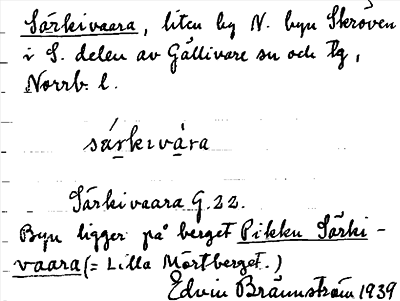 Särkivaara, liten by N. byn Skröven
i S. delen av Gällivare sn och tg,
Norrb. l.
särkıvàra
Särkivaara G.22.
Byn ligger på berget Pikku Särki-
vaara (= Lilla Mörtberget.)
Edvin Brännström 1939